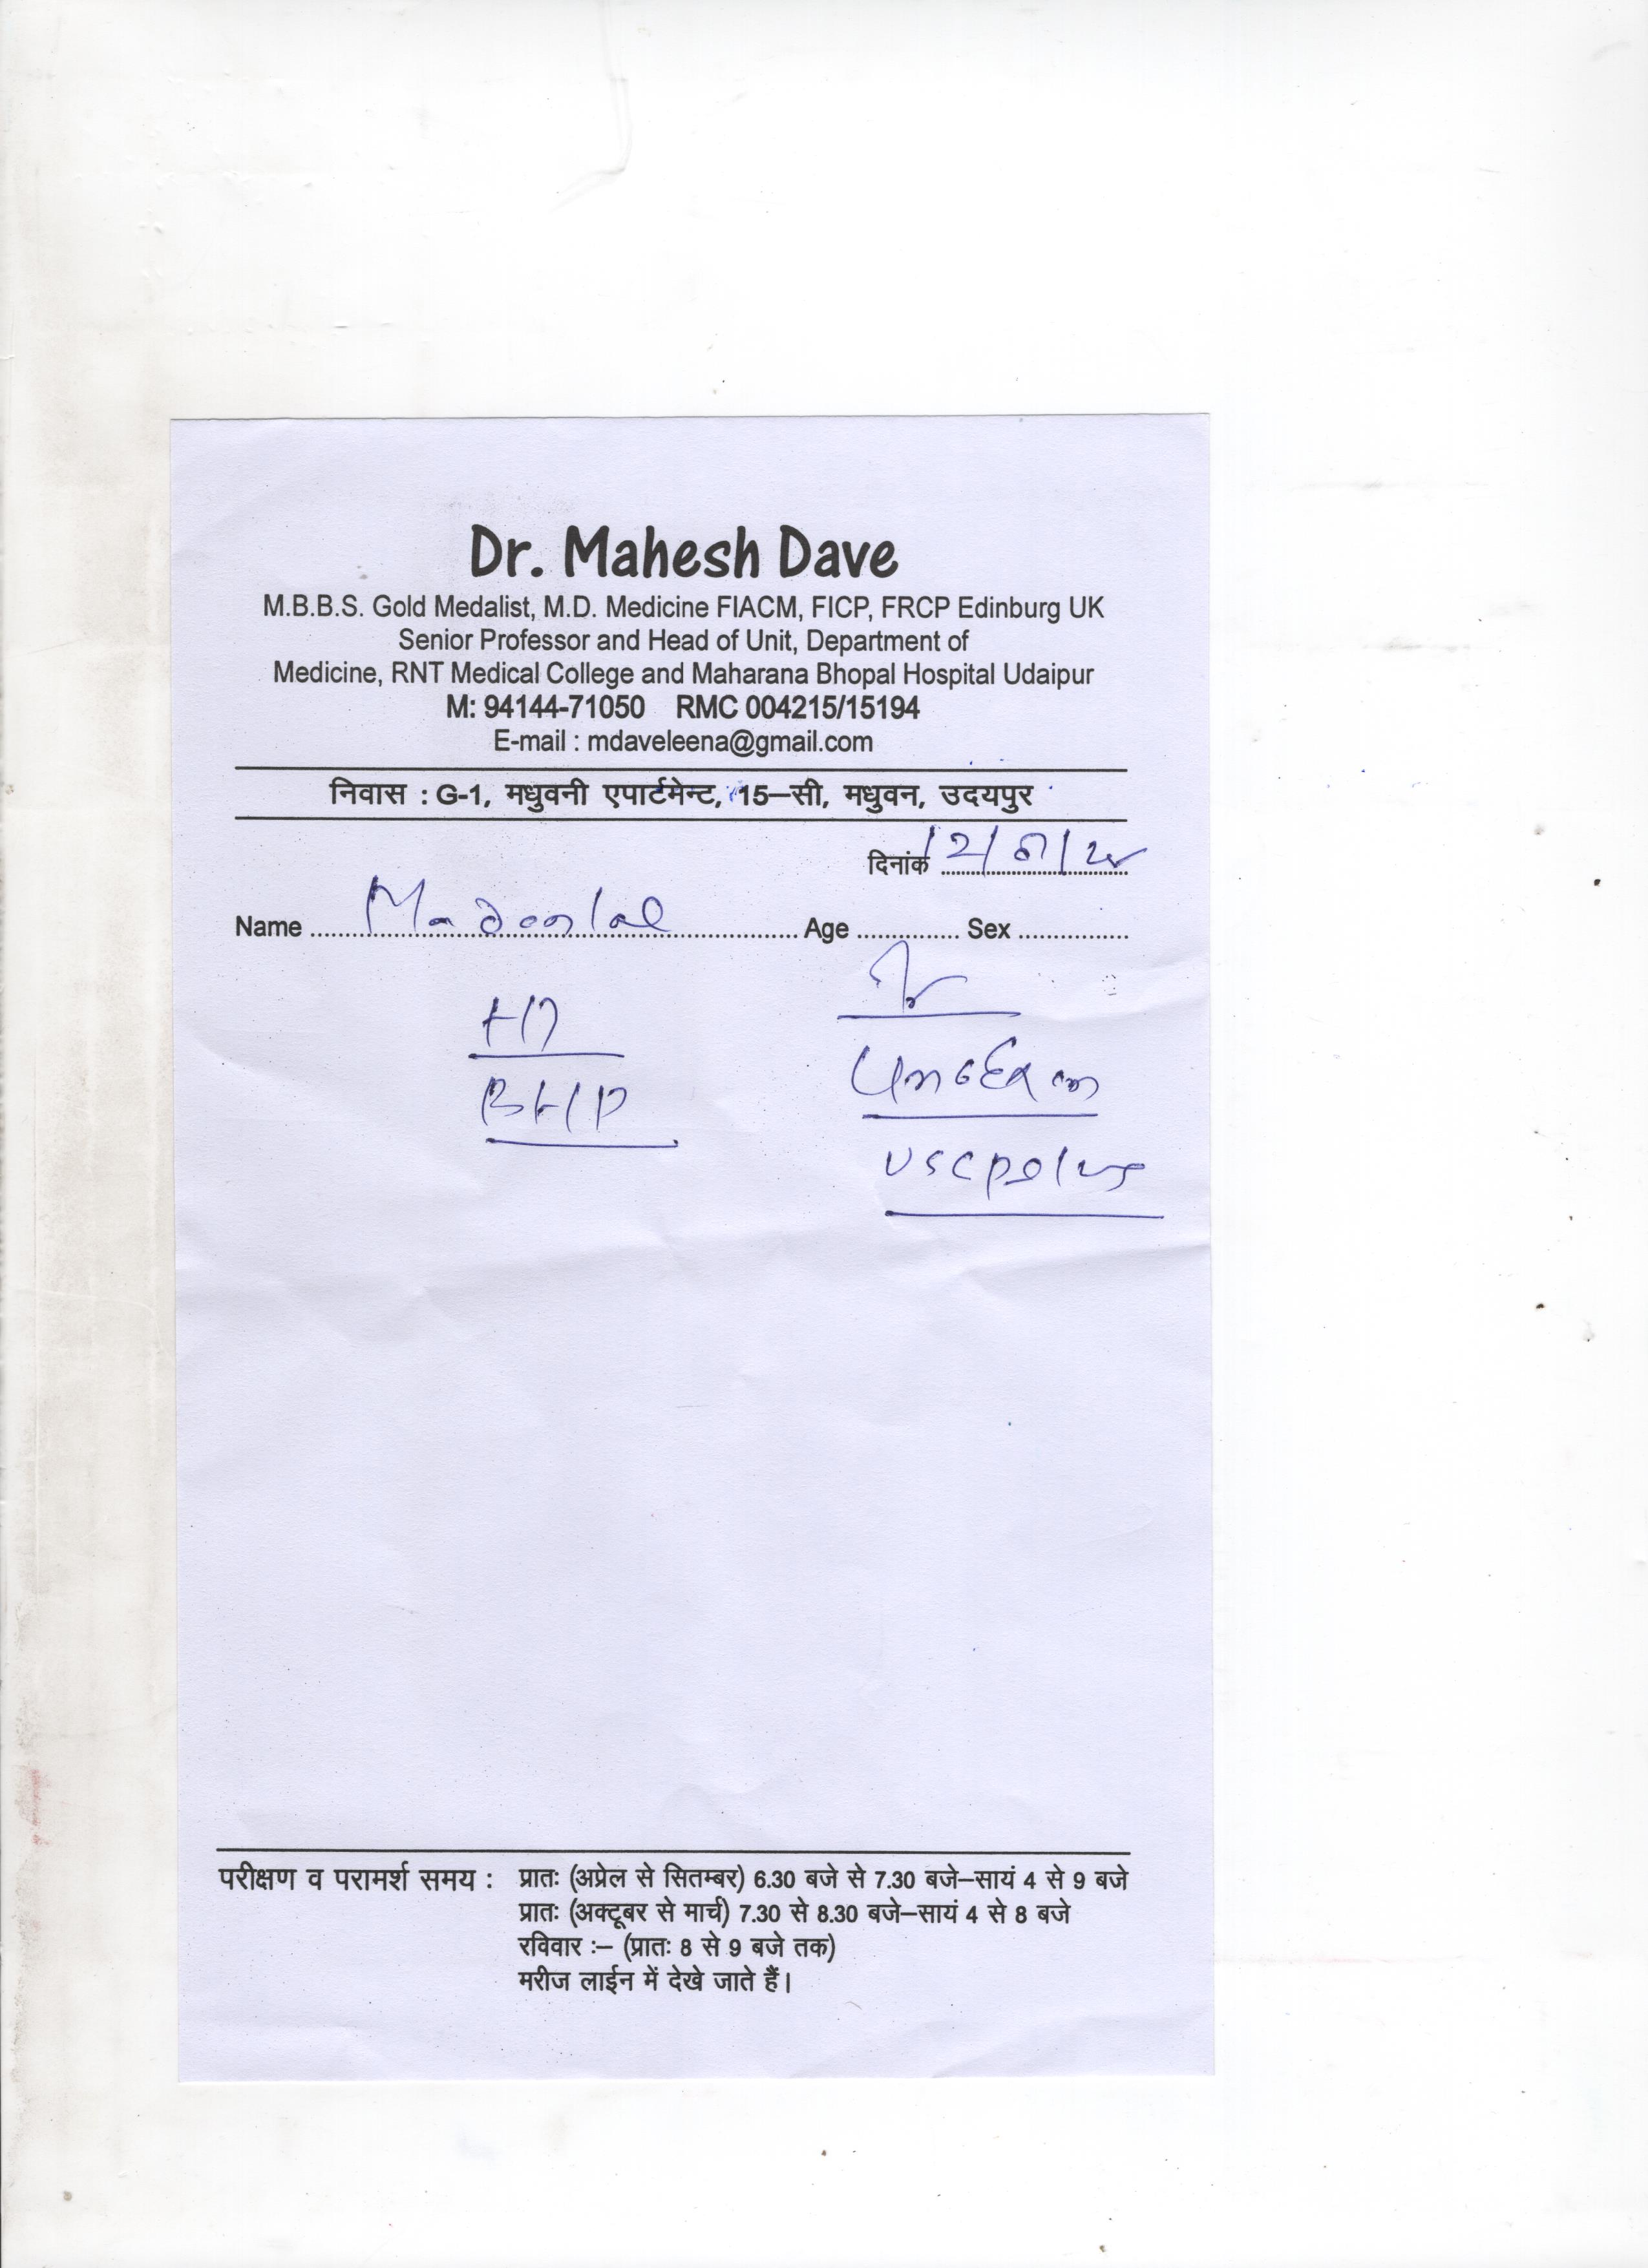 Dr. Mahesh Dave
M.B.B.S. Gold Medalist, M.D. Medicine FIACM, FICP, FRCP Edinburg UK
Senior Professor and Head of Unit, Department of
Medicine, RNT Medical College and Maharana Bhopal Hospital Udaipur
M: 94144-71050 RMC 004215/15194
E-mail : mdaveleena@gmail.com
निवास : G-1, मधुवनी एपार्टमेन्ट, 15–सी, मधुवन, उदयपुर
दिनांक
Name Madanlal Age Sex
BHP
परीक्षण व परामर्श समय : प्रातः (अप्रेल से सितम्बर) 6.30 बजे से 7.30 बजे–सायं 4 से 9 बजे
प्रातः (अक्टूबर से मार्च) 7.30 से 8.30 बजे–सायं 4 से 8 बजे
रविवार :– (प्रातः 8 से 9 बजे तक)
मरीज लाईन में देखे जाते हैं।